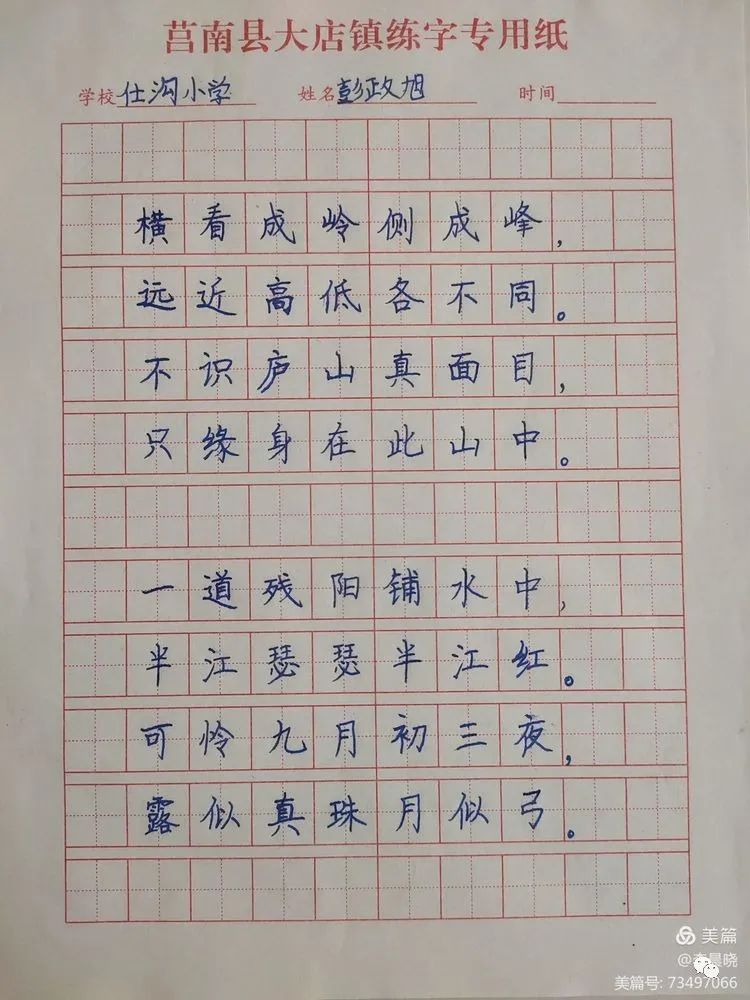 莒南县大店镇练字专用纸
学校 仕沟小学 姓名 彭政旭 时间
横看成岭侧成峰，
远近高低各不同。
不识庐山真面目，
只缘身在此山中。
一道残阳铺水中，
半江瑟瑟半江红。
可怜九月初三夜，
露似真珠月似弓。
美篇
@李晨晓
美篇号: 73497066